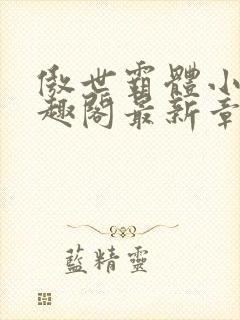 傲世霸體小
趣閣最新章
藍精靈